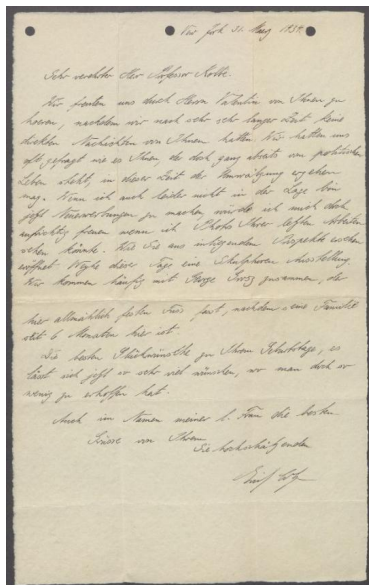 New York 31. März 1934.
Sehr verehrter Herr Professor Kolbe.
Wir freuten uns durch Herrn Valentin von Ihnen zu
hoeren, nachdem wir nach sehr sehr langer Zeit keine
direkten Nachrichten von Ihnen hatten. Wir hatten uns
oft gefragt wie es Ihnen, der doch ganz abseits vom politischen
Leben steht, in dieser Zeit der Umwälzung ergehen
mag. Wenn ich auch leider nicht in der Lage bin
jetzt Neuerwerbungen zu machen, würde ich mich doch
aufrichtig freuen wenn ich Photos Ihrer letzten Arbeiten
sehen könnte. Wie Sie aus inliegendem Prospekt ersehen
eröffnet Weyhe dieser Tage eine Skulpturen Ausstellung
Wir kommen häufig mit George Grosz zusammen, der
hier allmählich festen Fuss fasst, nachdem eine Familie
seit 6 Monaten hier ist.
Die besten Glückwünsche zu Ihrem Geburtstage, es
lässt sich jetzt so sehr viel wünschen, wo man doch so
wenig zu erhoffen hat.
Auch im Namen meiner l. Frau die besten
Grüsse von Ihrem
Sie hochschätzenden